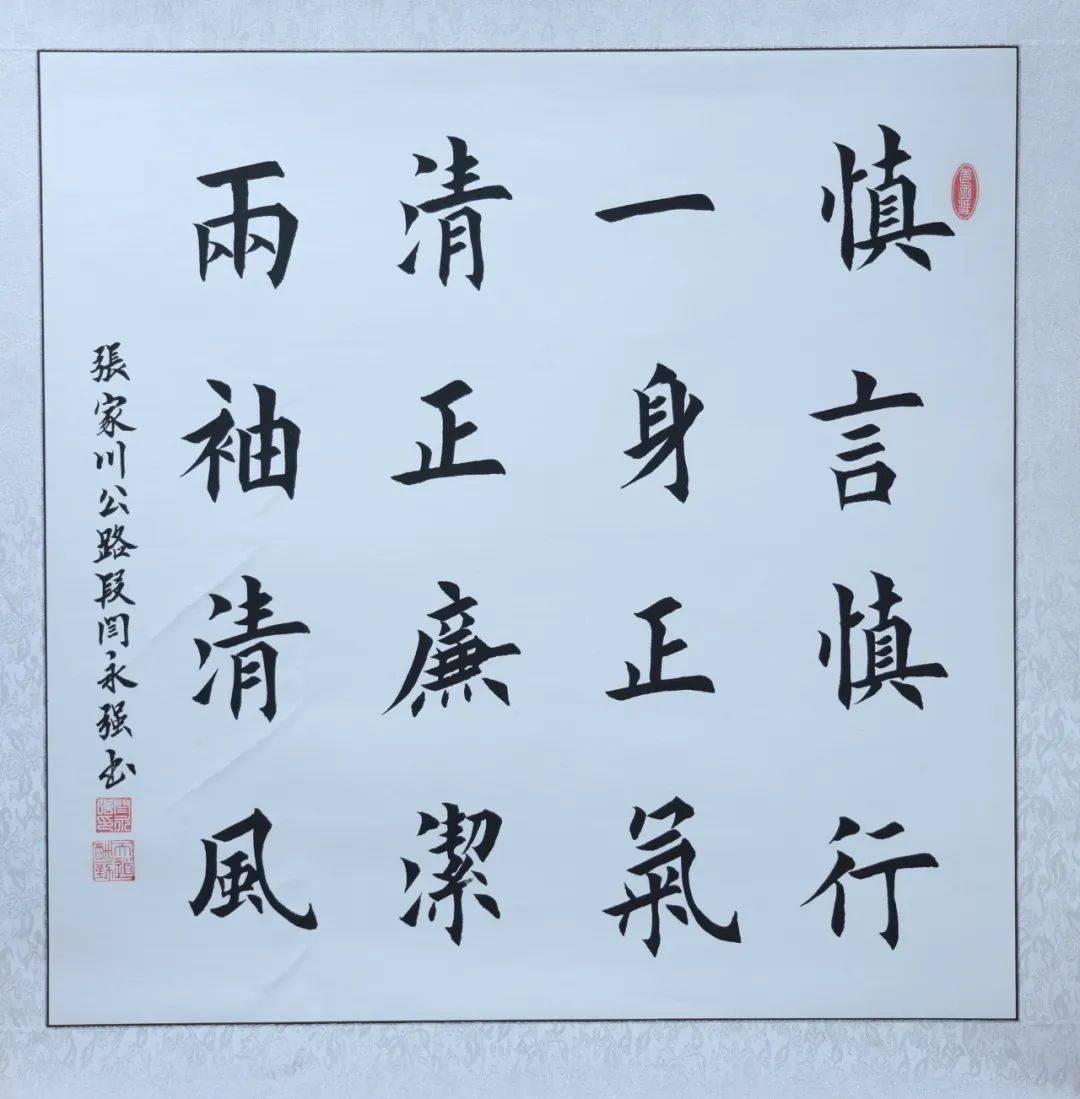 慎言慎行
一身正氣
清正廉潔
兩袖清風
張家川公路段閆永强书